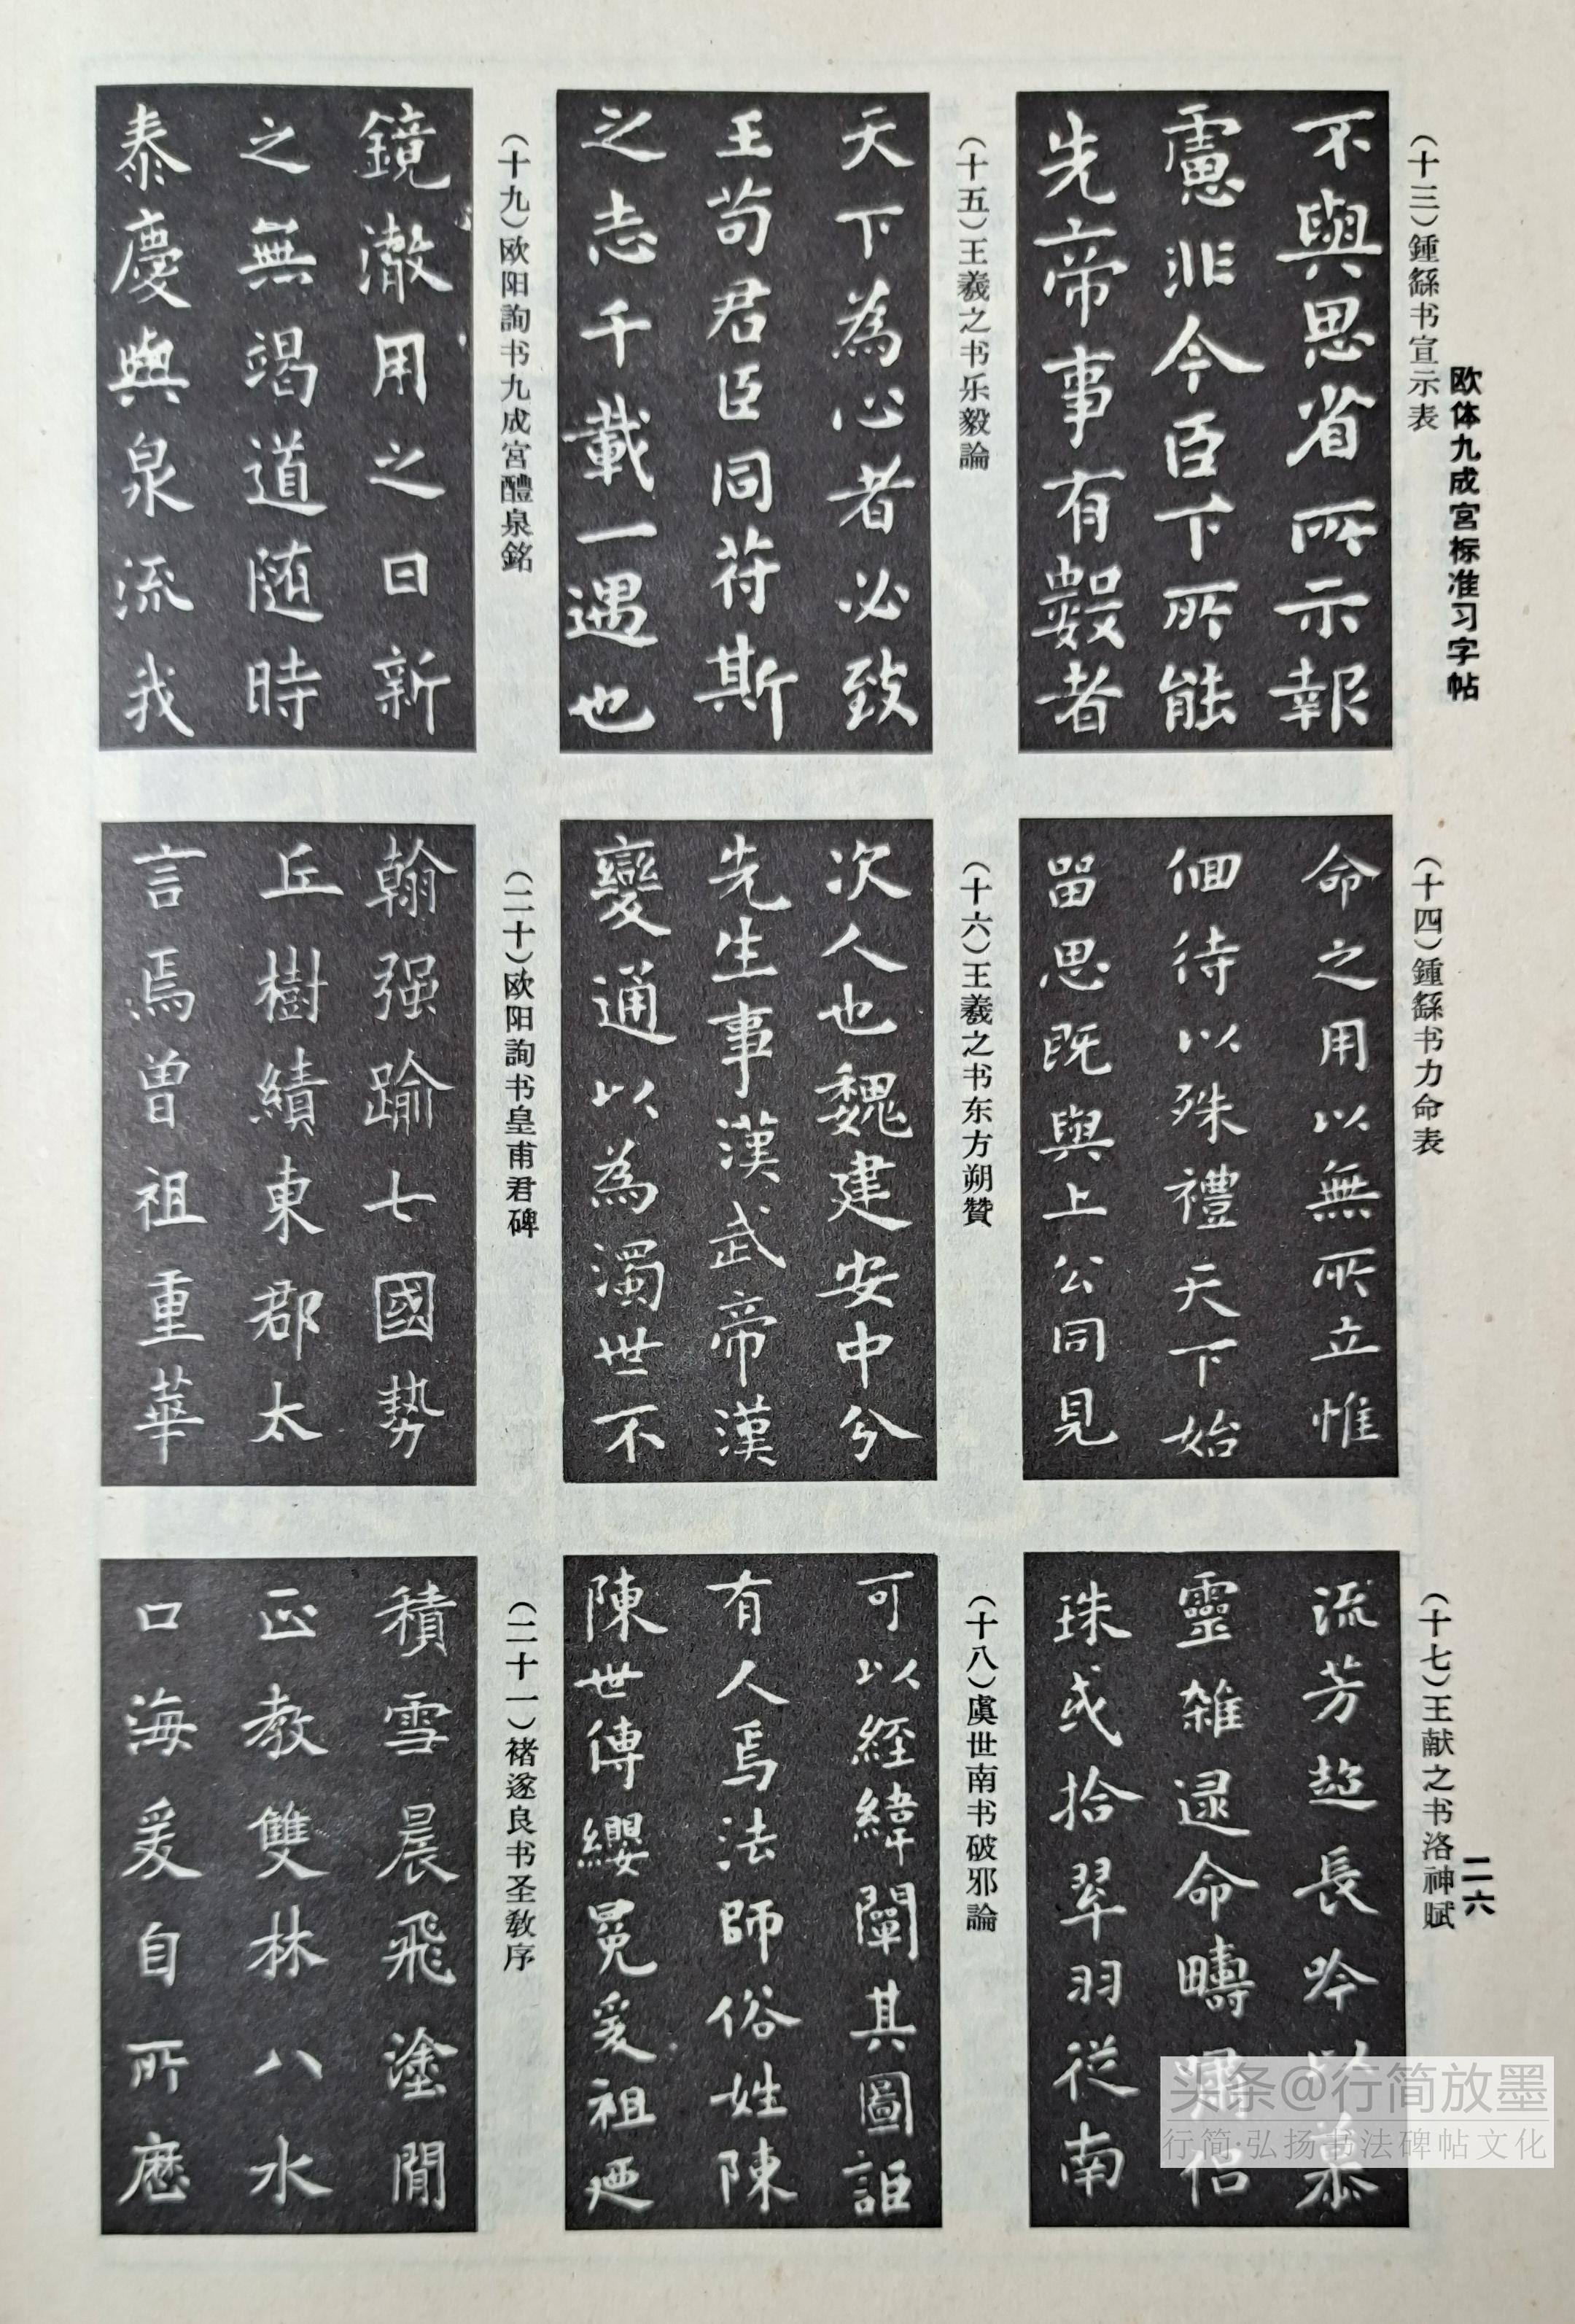 欧体九成宮标准习字帖
二六
(十三)鍾繇书宣示表
不與思省所示報
慮非今臣下所能
先帝事有數者
(十四)鍾繇书力命表
命之用以無所立惟
佪待以殊禮天下始
留思既與上公同見
(十五)王羲之书乐毅論
天下為心者必致
王苟君臣同荷斯
之志千載一遇也
(十六)王羲之书东方朔贊
次人也魏建安中分
先生事漢武帝漢
變通以為濁世不
(十七)王献之书洛神賦
流芳超長吟以慕
靈雜遝命疇嘯侣
珠或拾翠羽從南
(十八)虞世南书破邪論
可以經緯闡其圖詎
有人焉法師俗姓陳
陳世傳纓冕爰祖
(十九)欧阳詢书九成宮醴泉銘
鏡澈用之日新
之無竭道随時
泰慶與泉流我
(二十)欧阳詢书皇甫君碑
翰强踰七國勢
丘樹績東郡太
言焉曾祖重華
(二十一)褚遂良书圣教序
積雪晨飛塗閒
正教雙林八水
口海爰自所歷
头条@行简放墨
行简·弘扬书法碑帖文化